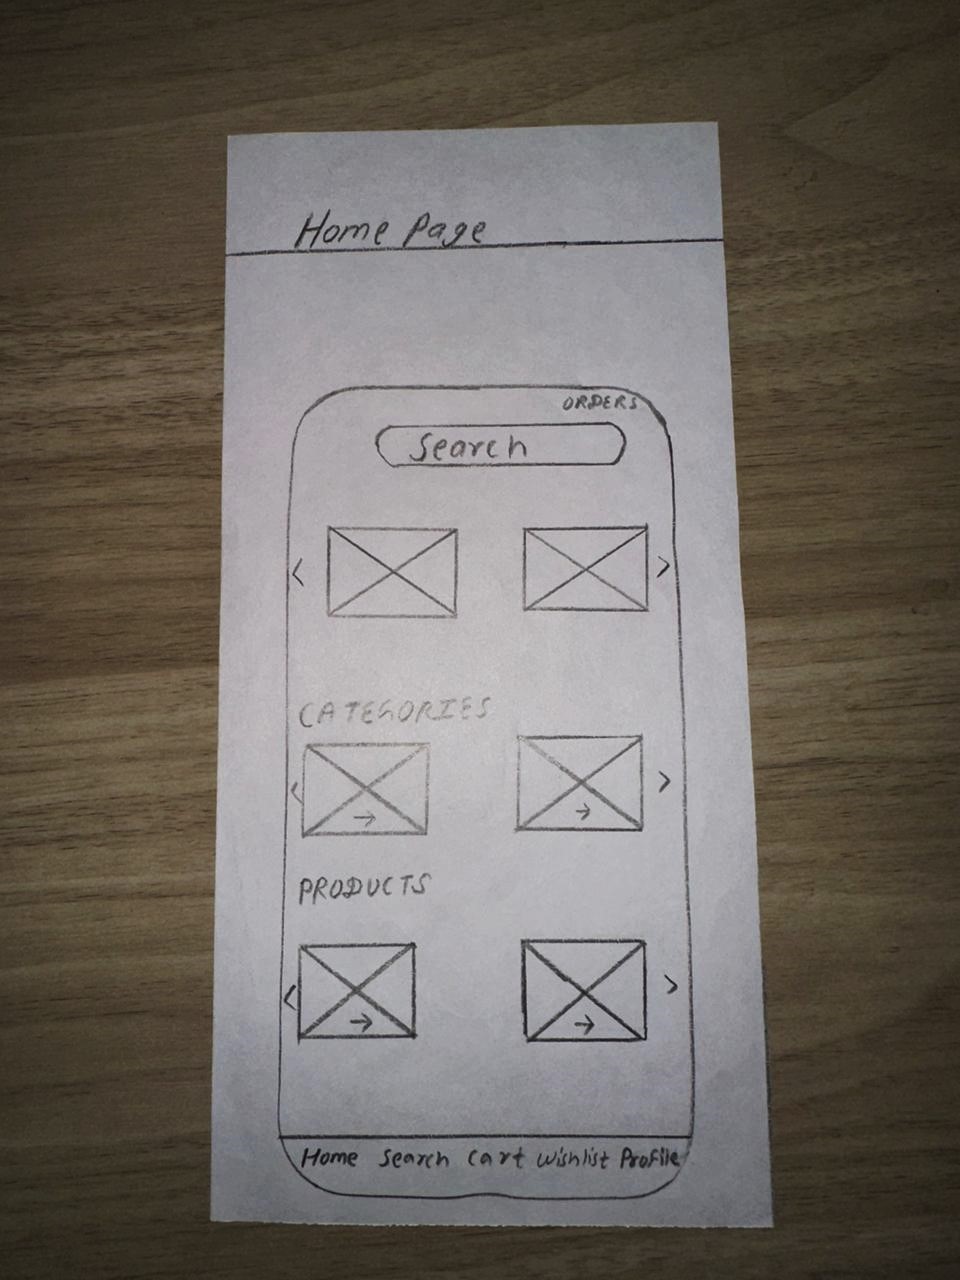 Home Page
ORDERS
Search
CATEGORIES
PRODUCTS
Home Search Cart Wishlist Profile